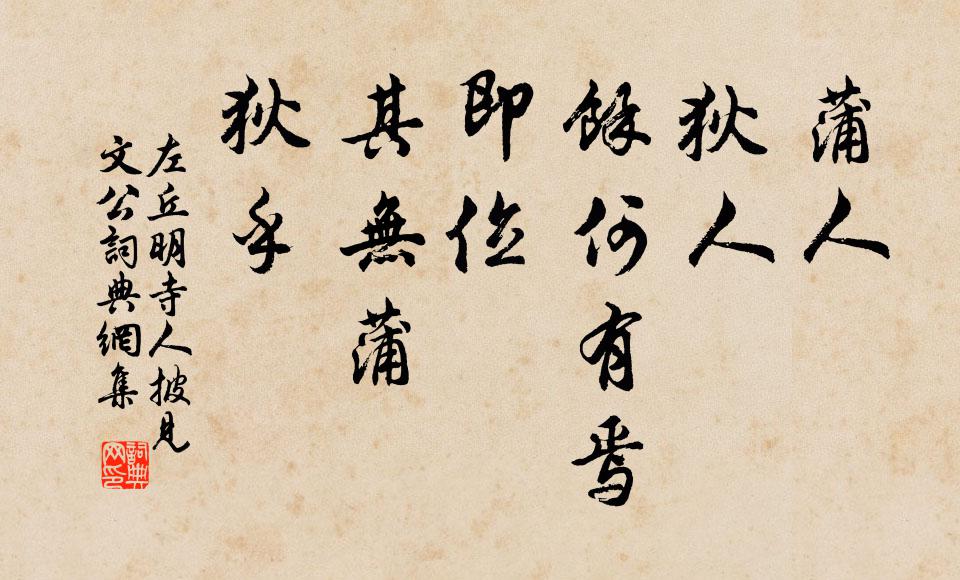 蒲人
狄人
餘何有焉
即位
其無蒲
狄乎
左丘明寺人披見
文公詞典網集
詞典
网印